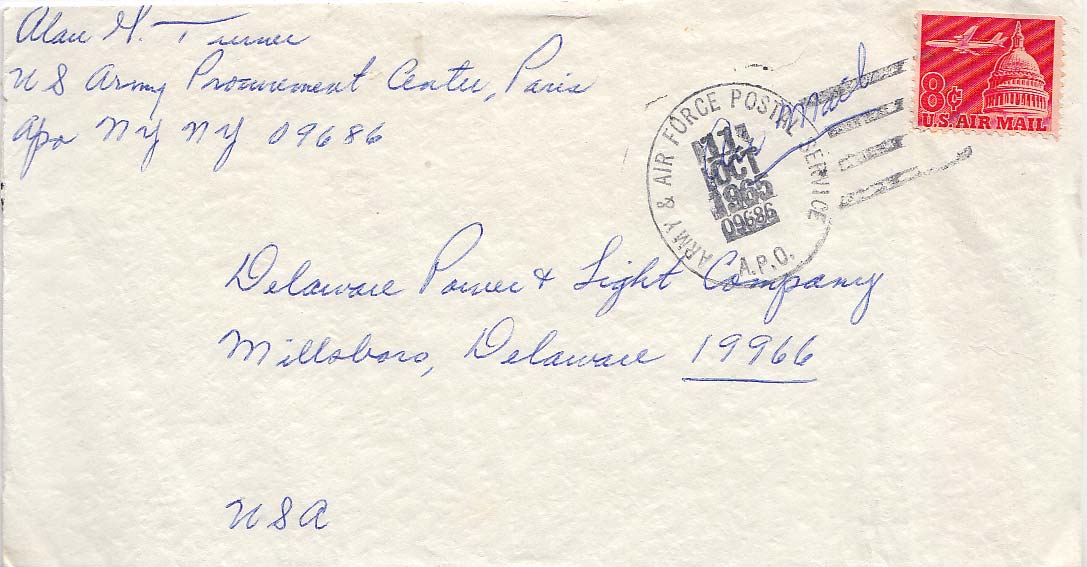 Alan H. Turner
U S Army Procurement Center, Paris
Apo NY NY 09686
8¢
U.S. AIR MAIL
ARMY & AIR FORCE POSTAL SERVICE
OCT
1965
09686
A.P.O.
Air Mail
Delaware Power & Light Company
Millsboro, Delaware 19966
USA